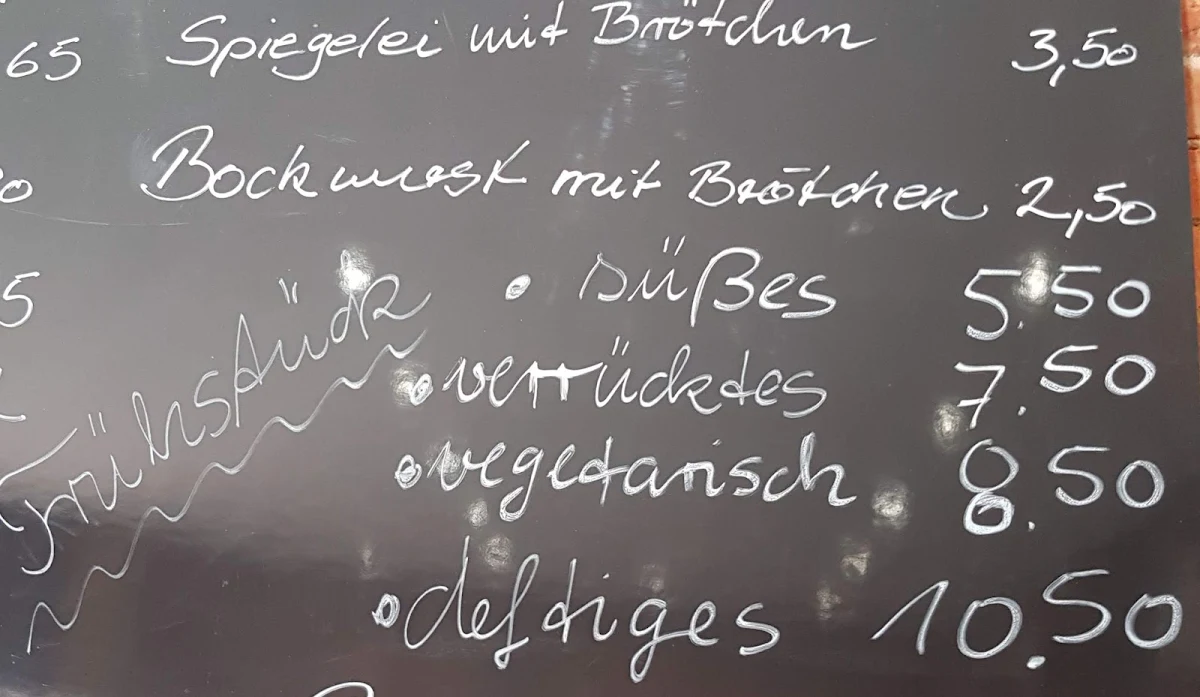 65 Spiegelei mit Brötchen 3,50
Bockwurst mit Brötchen 2,50
5
Frühstück
• süßes 5.50
• verrücktes 7.50
• vegetarisch 8.50
• deftiges 10.50